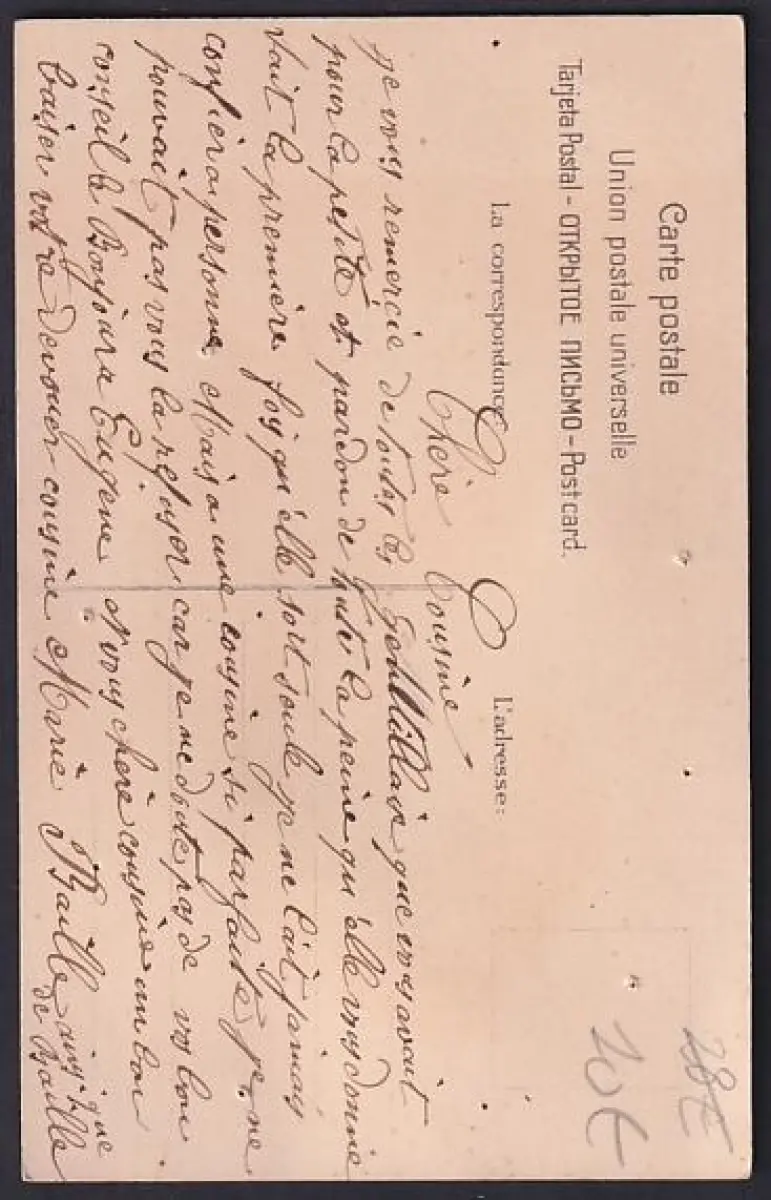 Carte postale
Union postale universelle
Tarjeta Postal - ОТКРЫТОЕ ПИСЬМО - Postcard.
La correspondance
L'adresse:
28€
10€
Chère Cousine
je vous remercie de toutes les gentillaise que vous avait
pour la petite et pardon de toute la peine qu'elle vous donne
vait la première fois qu'elle sort seule je ne l'ait jamais
confier a personne Mais a une cousine si parfaite je ne
pouvait pas vous la refuser car je ne doute pas de vos bon
conseil le Bonjour a Eugene et vous chère cousine un bon
baiser votre devouer cousine Marie Baille ainsi que
de Baille